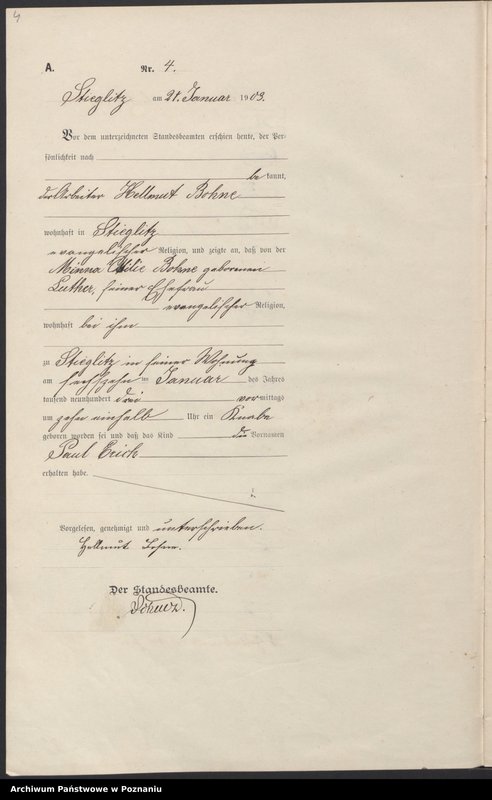 4
A.
Nr. 4.
Stieglitz am 21. Januar 1903.
Vor dem unterzeichneten Standesbeamten erschien heute, der Per-
sönlichkeit nach
be kannt,
der Arbeiter Hellmut Bohne
wohnhaft in Stieglitz
evangelischer Religion, und zeigte an, daß von der
Minna Ottilie Bohne geborenen
Luther, seiner Ehefrau
evangelischer Religion,
wohnhaft bei ihm
zu Stieglitz in seiner Wohnung
am sechszehn ten Januar des Jahres
tausend neunhundert drei vor mittags
um zehn einhalb Uhr ein Knabe
geboren worden sei und daß das Kind die Vornamen
Paul Erich
erhalten habe.
Vorgelesen, genehmigt und unterschrieben.
Hellmut Bohne.
Der Standesbeamte.
Archiwum Państwowe w Poznaniu